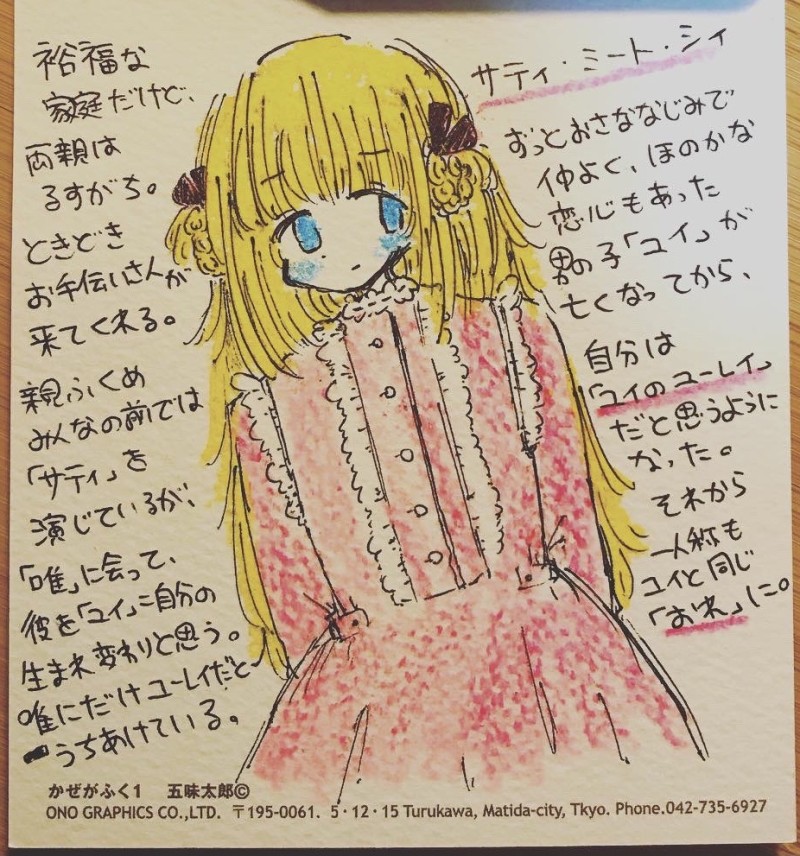 サティ・ミート・シィ
ずっとおさななじみで
仲よく、ほのかな
恋心もあった
男の子「ユイ」が
亡くなってから、
自分は
「ユイのユーレイ」
だと思うように
なった。
それから
一人称も
ユイと同じ
「おれ」に。
裕福な
家庭だけど、
両親は
るすがち。
ときどき
お手伝いさんが
来てくれる。
親ふくめ
みんなの前では
「サティ」を
演じているが、
「唯」に会って、
彼を「ユイ」=自分の
生まれ変わりと思う。
唯にだけユーレイだと
うちあけている。
かぜがふく1 五味太郎©
ONO GRAPHICS CO.,LTD. 〒195-0061. 5・12・15 Turukawa, Matida-city, Tkyo. Phone.042-735-6927